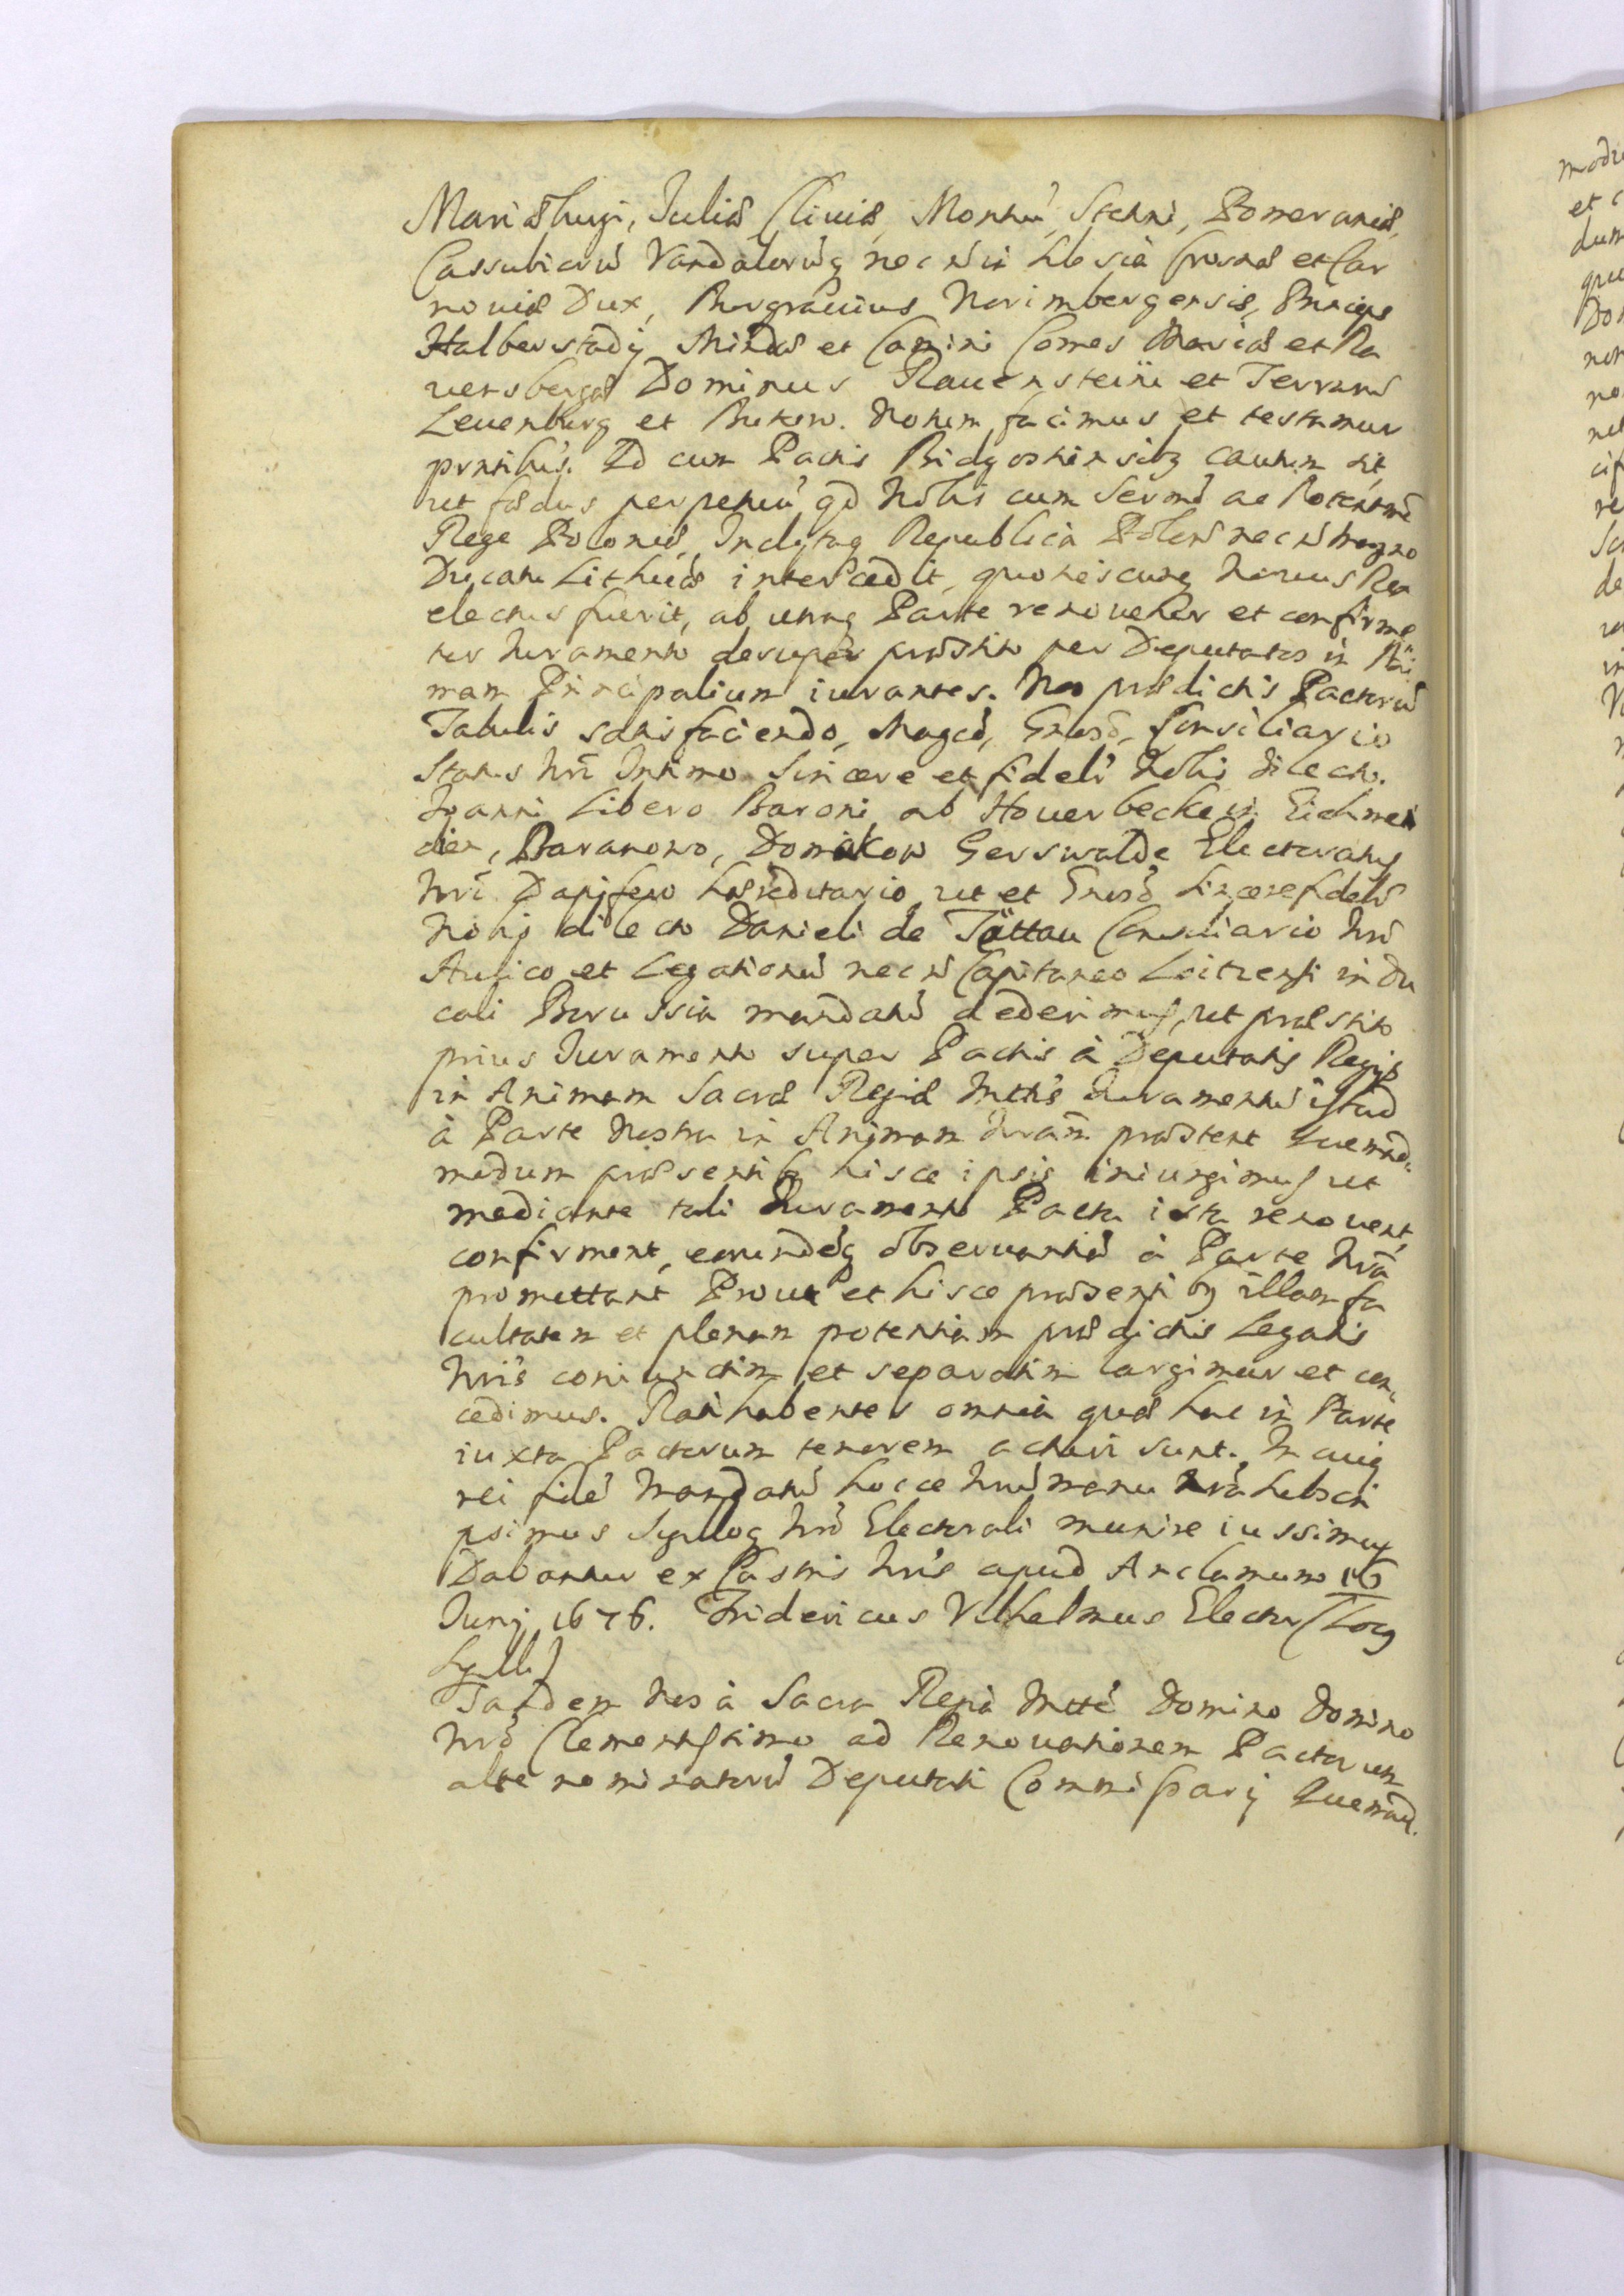 Mariæburgi, Juliæ Cliuiæ, Montiũ, Stetini, Pomeraniæ,
Cassubiorũ Vandalorũq nec nõ in Silesia Crosnæ et Car
nouiæ Dux, Burgrauius Norimbergensis, Princeps
Halberstadij Mindæ et Camini Comes Marciæ et Ra
uensbergæ Dominus Rauensteini et Terrarũ
Leuenburg et Butow. Notum facimus et testamur
pntibus. Id cum Pactis Bidgostiensibq cautum sit,
ut fædus perpetuũ qd Nobis cum Sermõ ac Potentmõ
Rege Poloniæ, Inclytaq Republica Polonã nec nõ Magno
Ducatu Lithuæ intercedit, quotiescunq Nouus Rex
electus fuerit, ab utraq Parte renouetur et confirme
tur Iuramento desuper præstito per Deputatos in Ani
mam Principalium iurantes. Nos prædictis Pactorũ
Tabulis satisfaciendo, Magcõ, Gnosõ, Consiliario
Status Nrõ Intimo Sincere et fideli Nobis dilecto.
Joanni Libero Baroni ab Houerbecke in Eichmei
dien, Baranowo, Domikow Gerswalde Electoratus
Nri Dapifero hæreditario ut et Gnosõ Sincere fideli
Nobis dilecto Danieli de Tättau Consiliario Nrõ
Aulico et Legationũ nec nõ Capitaneo Loitzensi in Du
cali Borussia mandatũ dederimus, ut præstito
prius Iuramento super Pactis à Deputatis Regijs
in Animam Sacræ Regiæ Mttis Iuramentũ istud
à Parte Nostra in Animam Nram præstent Quemad
modum præsentibq hisce ipsis iniungimus ut
mediante tali Iuramento Pacta ista renouent,
confirment, eorundẽq obseruantiã à Parte Nrã
promettant Prout et hisce præsentibq illam fa
cultatem et plenam potentiam prædictis Legatis
Nris coniunctim et separatim largimur et con
cedimus. Rati habentes omnia quæ hac in Parte
iuxta Pactorum tenorem acturi sunt. In cuiq
rei fidẽ Mandatũ hocce Nrũ manu Nrã subscri
psimus Sigilloq Nrõ Electorali munire iussimus
Dabantur ex Castris Nris apud Anclamum 16
Junij 1676. Fridericus Vilhelmus Elector (Locq
Sigilli)
Tandem Nos à Sacra Regia Mtte Domino Domino
Nrõ Clementissimo ad Renouationem Pactorum
alte nominatorũ Deputati Commissarij Quemad.